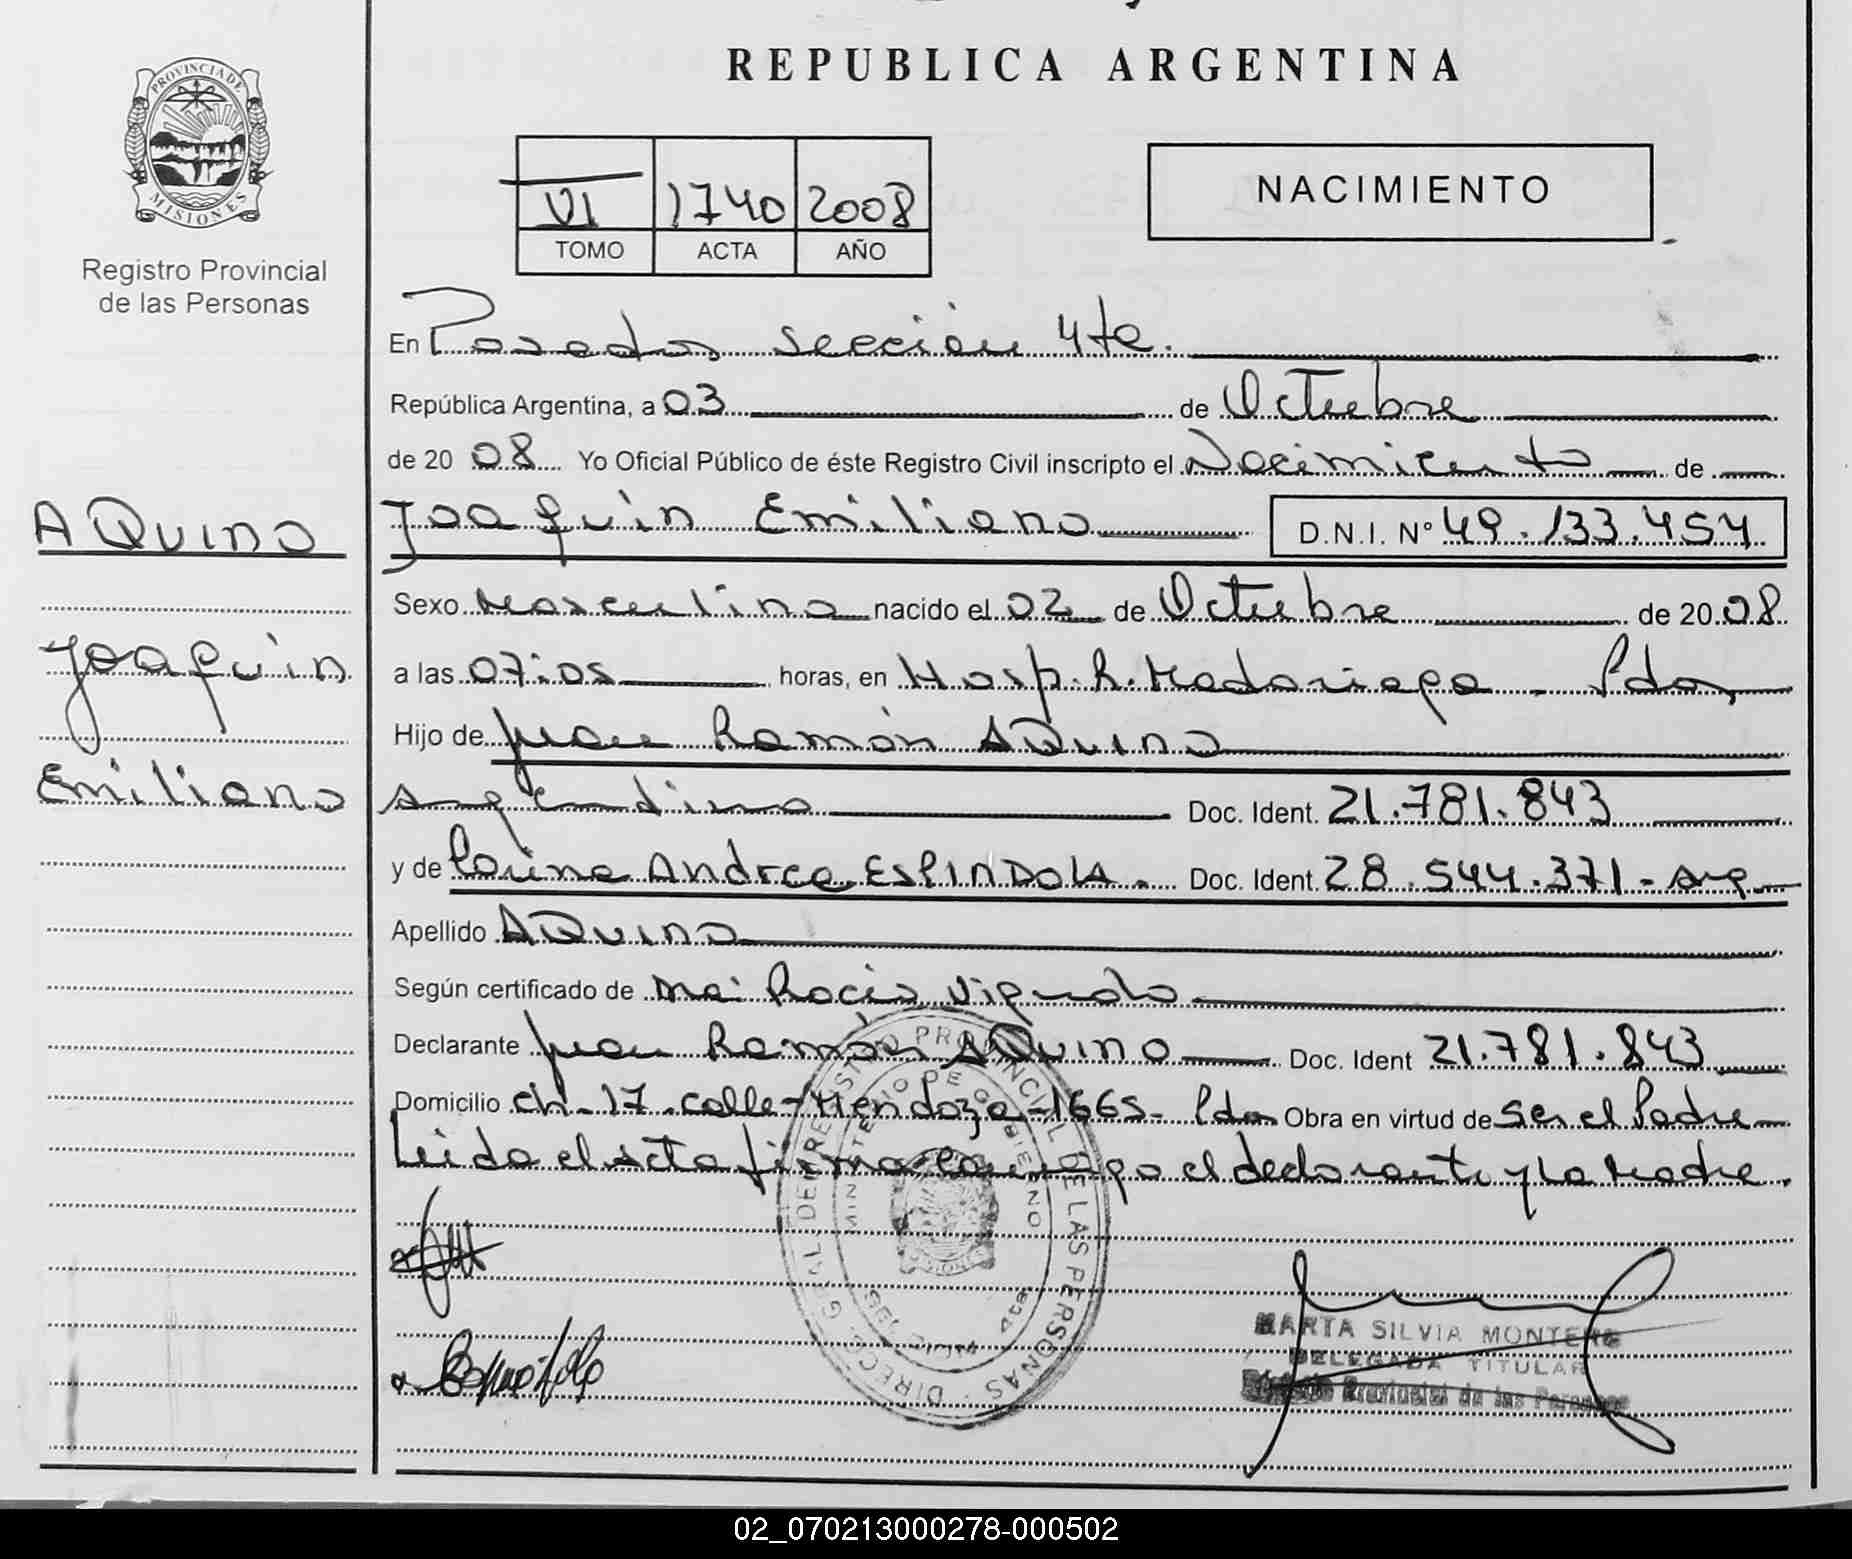 REPUBLICA ARGENTINA
PROVINCIA DE
MISIONES
Registro Provincial
de las Personas
VI 1740 2008
TOMO ACTA AÑO
NACIMIENTO
En Posadas sección 4ta.
República Argentina, a 03 de Octubre
de 20 08 Yo Oficial Público de éste Registro Civil inscripto el Nacimiento de
AQUINO
Joaquin Emiliano D.N.I. Nº 49.133.454
Sexo Masculino nacido el 02 de Octubre de 20 08
Joaquin
a las 07:05 horas, en Hosp. R. Madariaga - Pdas
Hijo de Juan Ramón AQUINO
Emiliano
Argentino Doc. Ident. 21.781.843
y de Andrea ESPINDOLA. Doc. Ident. 28.544.371 - Arg
Apellido AQUINO
Según certificado de Ma. Rocío
Declarante Juan Ramón AQUINO Doc. Ident 21.781.843
Domicilio Ch-17. calle-Mendoza-1665- Pdas Obra en virtud de Ser el Padre
Leida el acta firma conmigo el declarante y la Madre.
DIRECC. GRAL DEL REGISTRO PROVINCIAL DE LAS PERSONAS
MINISTERIO DE GOBIERNO
4ta
MARTA SILVIA MONTERO
DELEGADA TITULAR
Provincial de las Personas
02_070213000278-000502